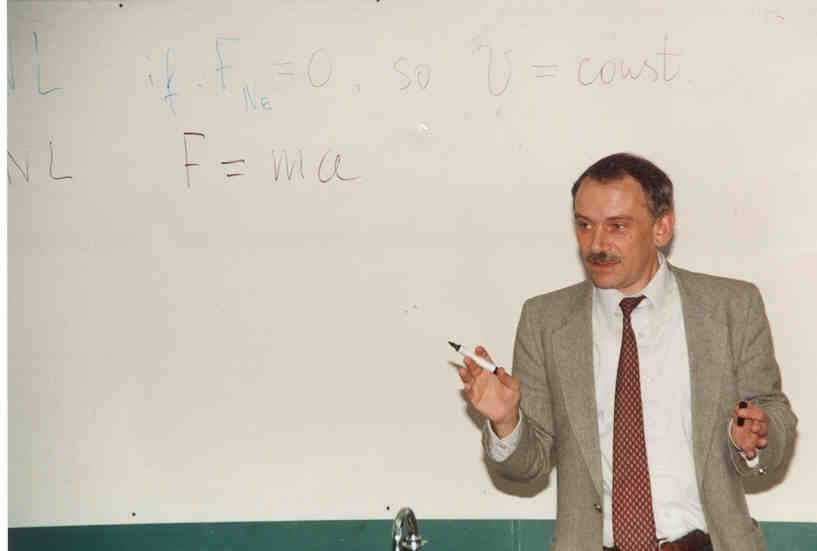 NL if F Ne = 0, so v = const.
NL F = ma